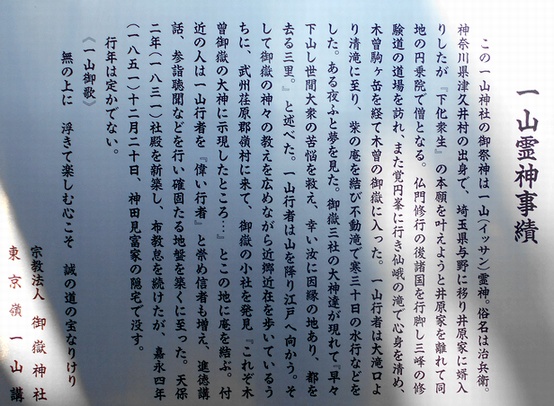 一山霊神事績
この一山神社の御祭神は一山（イッサン）霊神。俗名は治兵衛。
神奈川県津久井村の出身で、埼玉県与野に移り井原家に婿入
りしたが『下化衆生』の本願を叶えようと井原家を離れて同
地の円乗院で僧となる。仏門修行の後諸国を行脚し三峰の修
験道の道場を訪れ、また覚円峯に行き仙峨の滝で心身を清め、
木曽駒ヶ岳を経て木曽の御嶽に入った。一山行者は大滝口よ
り清滝に至り、柴の庵を結び不動滝で寒三十日の水行などを
した。ある夜ふと夢を見た。御嶽三社の大神達が現れて『早々
下山し世間大衆の苦悩を救え、幸い汝に因縁の地あり、都を
去る三里。』と述べた。一山行者は山を降り江戸へ向かう。そ
して御嶽の神々の教えを広めながら近郷近在を歩いているう
ちに、武州荏原郡嶺村に来て、御嶽の小社を発見『これぞ木
曽御嶽の大神に示現したところ…』とこの地に庵を結ぶ。付
近の人は一山行者を『偉い行者』と崇め信者も増え、進徳講
話、参詣聴聞などを行い確固たる地盤を築くに至った。天保
二年（一八三一）社殿を新築し、布教怠を続けたが、嘉永四年
（一八五一）十二月二十日、神田見富家の隠宅で没す。
行年は定かでない。
《一山御歌》
無の上に　浮きて楽しむ心こそ　誠の道の宝なりけり
宗教法人　御嶽神社
東京嶺一山講